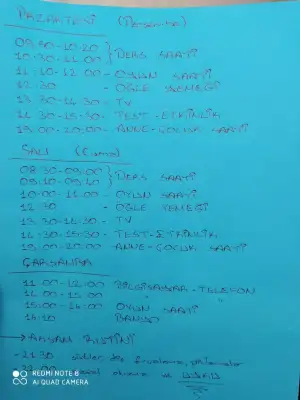 PAZARTESİ (Perşembe)
09:30-10:20 } DERS SAATİ
10:30-11:00
11:10-12:00 - OYUN SAATİ
12:30 - ÖĞLE YEMEĞİ
13:30-14:30 - TV
14:30-15:30 - TEST-ETKİNLİK
19:00-20:00 - ANNE-ÇOCUK SAATİ
SALI (Cuma)
08:30-09:00 } DERS SAATİ
09:10-09:40
10:00-11:00 - OYUN SAATİ
12:30 - ÖĞLE YEMEĞİ
13:30-14:30 - TV
14:30-15:30 - TEST-ETKİNLİK
19:00-20:00 - ANNE-ÇOCUK SAATİ
ÇARŞAMBA
11:00-12:00 BİLGİSAYAR-TELEFON
14:00-15:00 " "
15:00-16:00 OYUN SAATİ
16:10 BANYO
→ AKŞAM RUTİNİ
- 21:30
- 22:00
REDMI NOTE 8
AI QUAD CAMERA